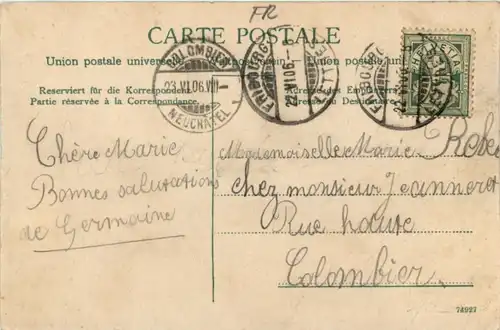 FR
CARTE POSTALE
Union postale universelle
Reserviert für die Korrespondenz
Partie réservée à la Correspondance.
Adresse du Destinataire
COLOMBIER
23.VI.06.VIII
NEUCHATEL
FRIBOURG
22.VI.06.
FRIBOURG
HELVETIA
Chère Marie
Bonnes salutations
de Germaine
Mademoiselle Marie
chez monsieur Jeanneret
Rue haute
Colombier
74927